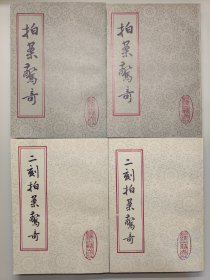 拍案驚奇
拍案驚奇
二刻拍案驚奇
二刻拍案驚奇